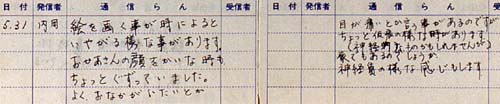 日 付 発信者 通 信 ら ん 受信者
5.31 内用 絵を画く事が時によると
いやがる様な事があります。
おかあさんの顔をかいな時も
ちょっとぐずっていました。
よく、おなかがいたいとか
日 付 発信者 通 信 ら ん 受信者
目が痛いとか言う事があるのですが
ちょっと仮病の様な時があります。
(神経的なものかもしれませんが)
家でもあるのでしょうか
神経質の様な感じもします